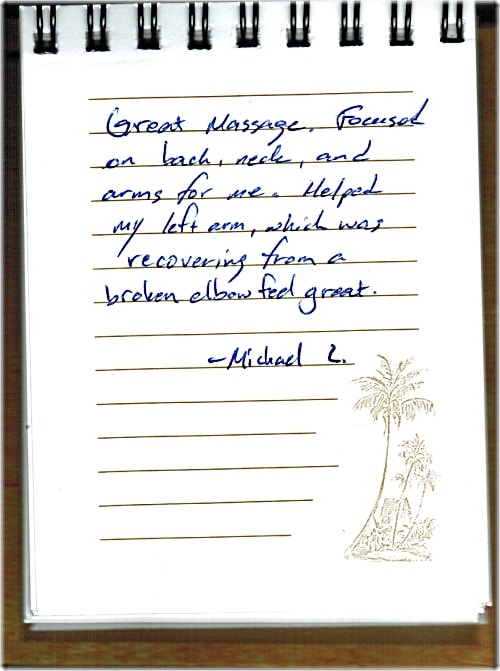 Great Massage. Focused
on back, neck, and
arms for me. Helped
my left arm, which was
recovering from a
broken elbow feel great.
- Michael Z.